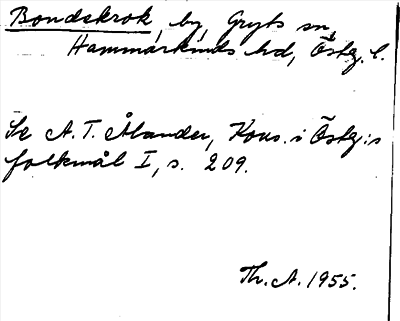 Bondekrok, by, Gryts sn,
Hammarkinds hd, Östg. l.
Se A. T. Ålander, Kons. i Östg:s
folkmål I, s. 209.
Th. A. 1955.